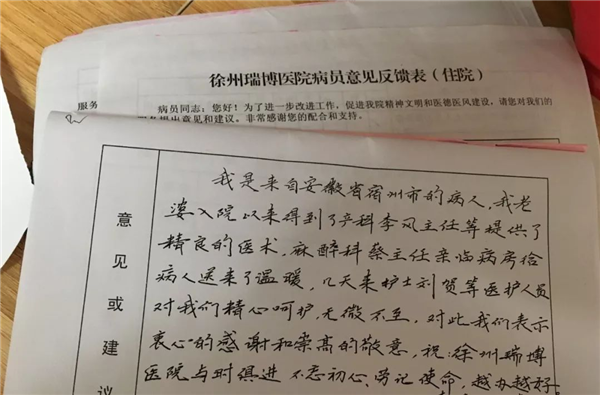 徐州瑞博医院病员意见反馈表（住院）
服务
病员同志：您好！为了进一步改进工作，促进我院精神文明和医德医风建设，请您对我们的
提出意见和建议。非常感谢您的配合和支持。
意见或建议
我是来自安徽省宿州市的病人，我老
婆入院以来得到了产科李凤主任等提供了
精良的医术，麻醉科蔡主任亲临病房给
病人送来了温暖，几天来护士刘贺等医护人员
对我们精心呵护，无微不至，对此我们表示
衷心的感谢和崇高的敬意，祝：徐州瑞博
医院与时俱进 不忘初心、劳记使命，越办越好